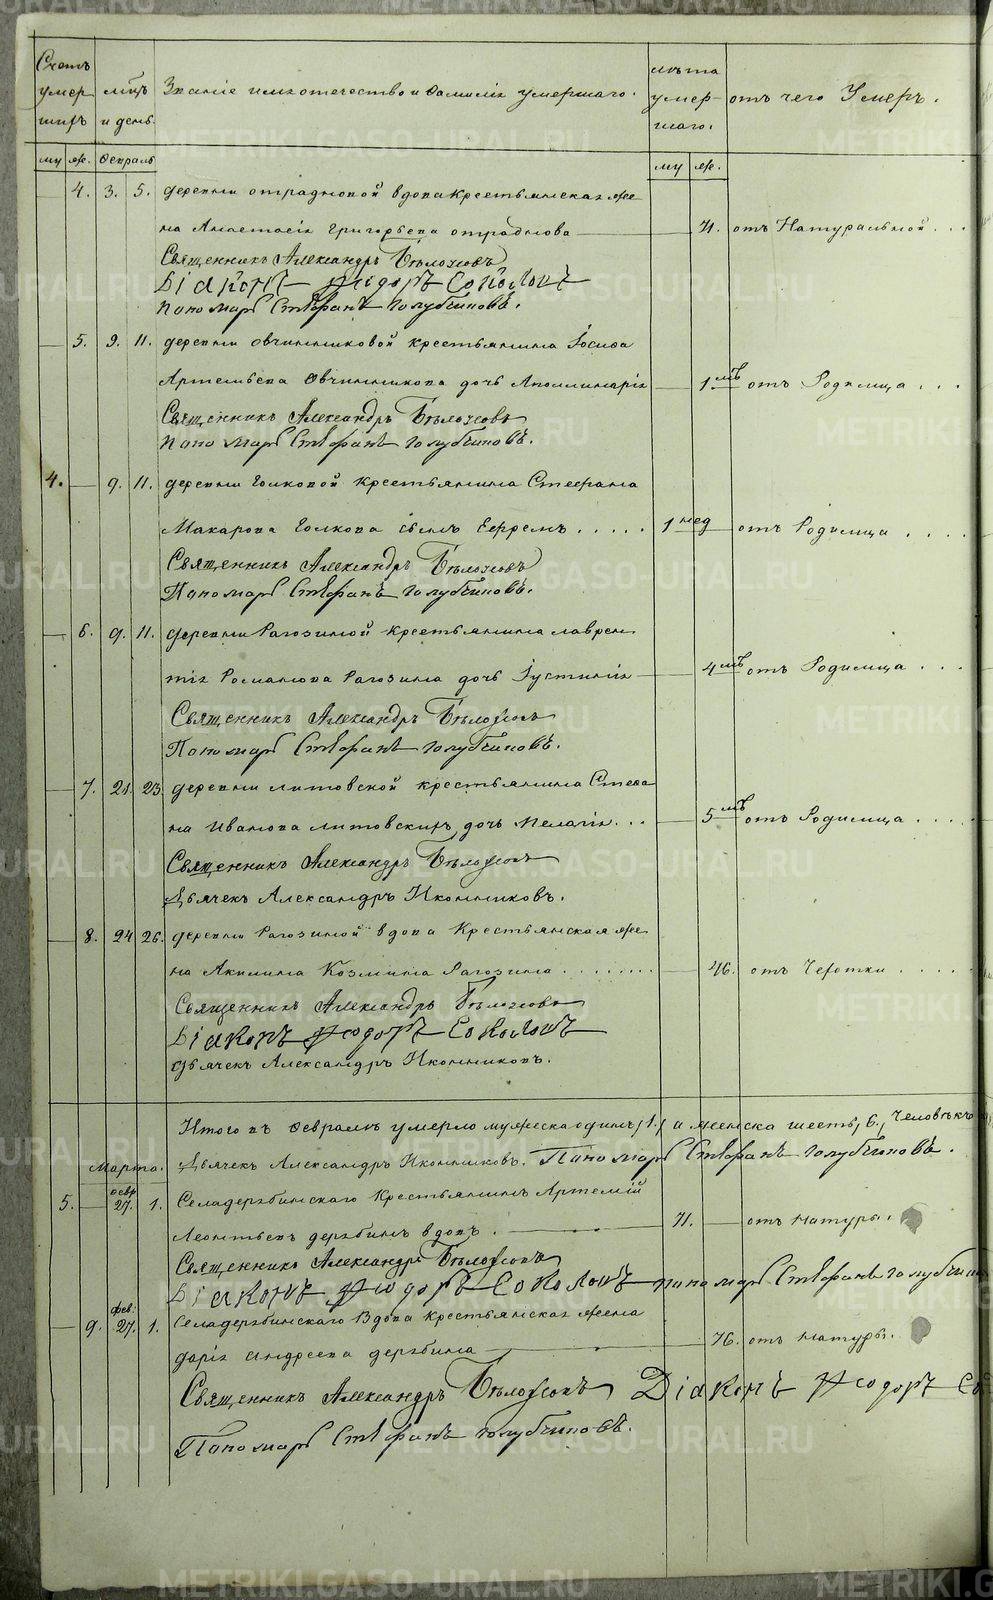 Счетъ умершихъ | мцъ и день. | Званіе имя отечество и Фамилія умершаго. | лѣта умершаго. | отъ чего Умеръ.
му | же. | Февраль | му | же.
4. 3. 5. деревни отрадновой вдова крестьянская же
на Анастасія григорьева отраднова 71. отъ Натуральной . . .
Священникъ Александръ Бѣлоусовъ
Діаконъ Феодоръ Соколовъ
пономарь Стефанъ голубчиковъ.
5. 9. 11. деревни овчинниковой крестьянина Іосифа
Артемьева Овчинникова дочь Аполлинарія 1 мѣ отъ Родимца . . .
Священникъ Александръ Бѣлоусовъ
поно марь Стефанъ голубчиковъ.
4. 9. 11. деревни Голковой крестьянина Стефана
Макарова Голкова сынъ Ефремъ . . . . . 1 нед отъ Родимца . . . .
Священникъ Александръ Бѣлоусовъ
Пономарь Стефанъ голубчиковъ.
6. 9. 11. деревни Рагозиной крестьянина лаврен
тія Романова Рагозина дочь Іустинія 4 мѣ отъ Родимца . . .
Священникъ Александръ Бѣлоусовъ
Пономарь Стефанъ голубчиковъ.
7. 21. 23. деревни литовской крестьянина Стефа
на Иванова литовскихъ дочь Пелагія . . . 5 мѣ отъ Родимца . . . .
Священникъ Александръ Бѣлоусовъ
Дьячекъ Александръ Иконниковъ.
8. 24 26. деревни Рагозиной вдова Крестьянская же
на Акилина Козмина Рагозина . . . . . . . . 46. отъ Чехотки . . . . .
Священникъ Александръ Бѣлоусовъ
Діаконъ Феодоръ Соколовъ
дьячекъ Александръ Иконниковъ.
Итого въ Февралѣ умерло мужеска одинъ /1./ а женска шесть /6./ Человѣкъ
Марта. Дьячекъ Александръ Иконниковъ. Пономарь Стефанъ голубчиковъ.
5. февр 27. 1. Селадерябинскаго Крестьянинъ Артемій
Леонтьевъ дерябинъ вдовъ. 71. отъ натуры.
Священникъ Александръ Бѣлоусовъ
Діаконъ Феодоръ Соколовъ пономарь Стефанъ голубчи
9. фев. 27. 1. Селадерябинскаго Вдова крестьянская жена
дарія андреева дерябина 76. отъ натуры.
Священникъ Александръ Бѣлоусовъ Діаконъ Феодоръ Со
Пономарь Стефанъ голубчиковъ.
METRIKI.GASO-URAL.RU